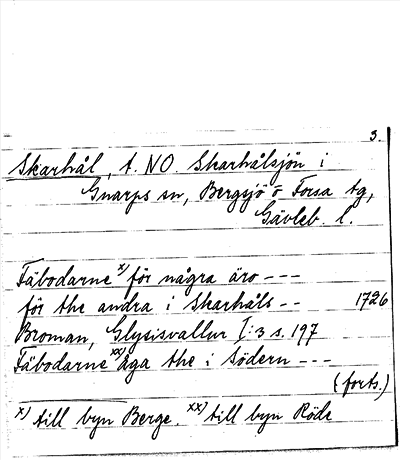 3.
Skarhål, t. NO. Skarhålsjön i
Gnarps sn, Bergsjö o Forsa tg,
Gävleb. l.
Fäbodarne x) för några äro ---
för the andra i Skarhåls -- 1726
Broman, Glysisvallur I:3 s. 197
Fäbodarne xx) äga the i Södern ---
(forts.)
x) till byn Berge. xx) till byn Röde